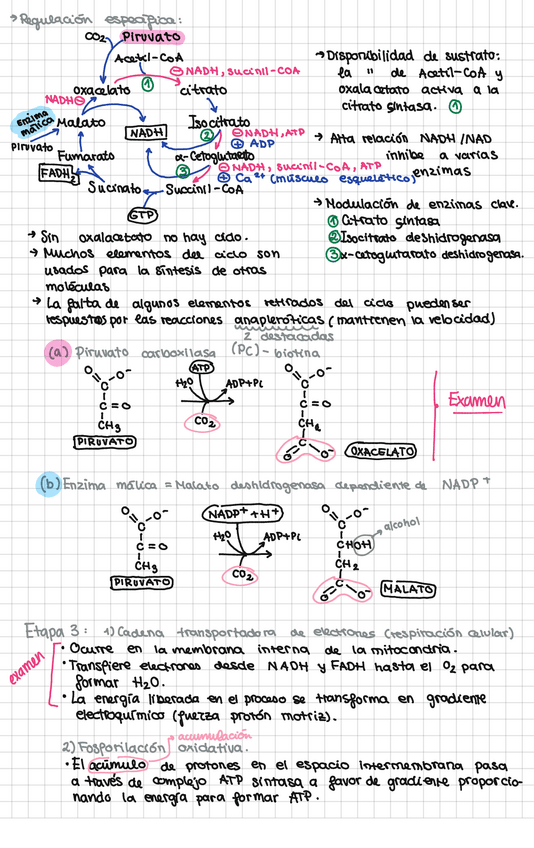 → Regulación específica:
CO₂ Piruvato
Acetil-CoA
⊖ NADH, succinil-COA
oxacelato ① citrato
NADH⊖
enzima málica Malato
Piruvato
NADH
Isocitrato
② ⊖ NADH, ATP
⊕ ADP
Fumarato
α-Cetoglutarato
③ ⊖ NADH, succinil-CoA, ATP
⊕ Ca²⁺ (músculo esquelético)
FADH₂
Succinato Succinil-CoA
GTP
→ Disponibilidad de sustrato:
la " de Acetil-CoA y
oxalacetato activa a la
citrato sintasa. ①
→ Alta relación NADH/NAD
inhibe a varias
enzimas
→ Modulación de enzimas clave.
① Citrato sintasa
② Isocitrato deshidrogenasa
③ α-cetoglutarato deshidrogenasa.
→ Sin oxalacetato no hay ciclo.
→ Muchos elementos del ciclo son
usados para la síntesis de otras
moléculas
→ La falta de algunos elementos retirados del ciclo pueden ser
respuestos por las reacciones anapleróticas (mantrenen la velocidad)
2 destacadas
(a) Piruvato carboxilasa (PC) - biotina
O O⁻
C
C = O
CH₃
PIRUVATO
ATP
H₂O ADP+Pi
CO₂
O O⁻
C
C = O
CH₂
C
O O⁻
OXACELATO
Examen
(b) Enzima málica = Malato deshidrogenasa dependiente de NADP⁺
O O⁻
C
C = O
CH₃
PIRUVATO
NADP⁺ + H⁺
H₂O ADP+Pi
CO₂
O O⁻
C
CHOH alcohol
CH₂
C
O O⁻
MALATO
Etapa 3: 1) Cadena transportadora de electrones (respiración celular)
examen
• Ocurre en la membrana interna de la mitocondria.
• Transfiere electrones desde NADH y FADH hasta el O₂ para
formar H₂O.
• La energía liberada en el proceso se transforma en gradiente
electroquímico (fuerza protón motriz).
acumulación
2) Fosforilación oxidativa.
• El acúmulo de protones en el espacio intermembrana pasa
a través de complejo ATP sintasa a favor de gradiente proporcio-
nando la energía para formar ATP.